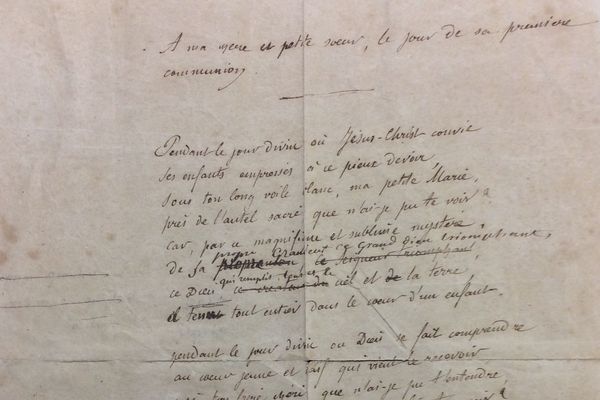 A ma chère et petite soeur, le jour de sa première
communion,
Pendant le jour divin où Jésus-Christ convie
ses enfants empressés à ce pieux devoir,
sous ton long voile blanc, ma petite Marie,
près de l'autel sacré que n'ai-je pu te voir?
car, par ce magnifique et sublime mystère
propre grandeur ce Grand Dieu triomphant,
de sa le Seigneur triomphant
qui remplit
ce Dieu ce créateur du ciel et de la terre,
il tient tout entier dans le coeur d'un enfant.
pendant le jour divin où Dieu se fait comprendre
au coeur jeune et naïf qui vient le recevoir
que n'ai-je pu t'entendre,